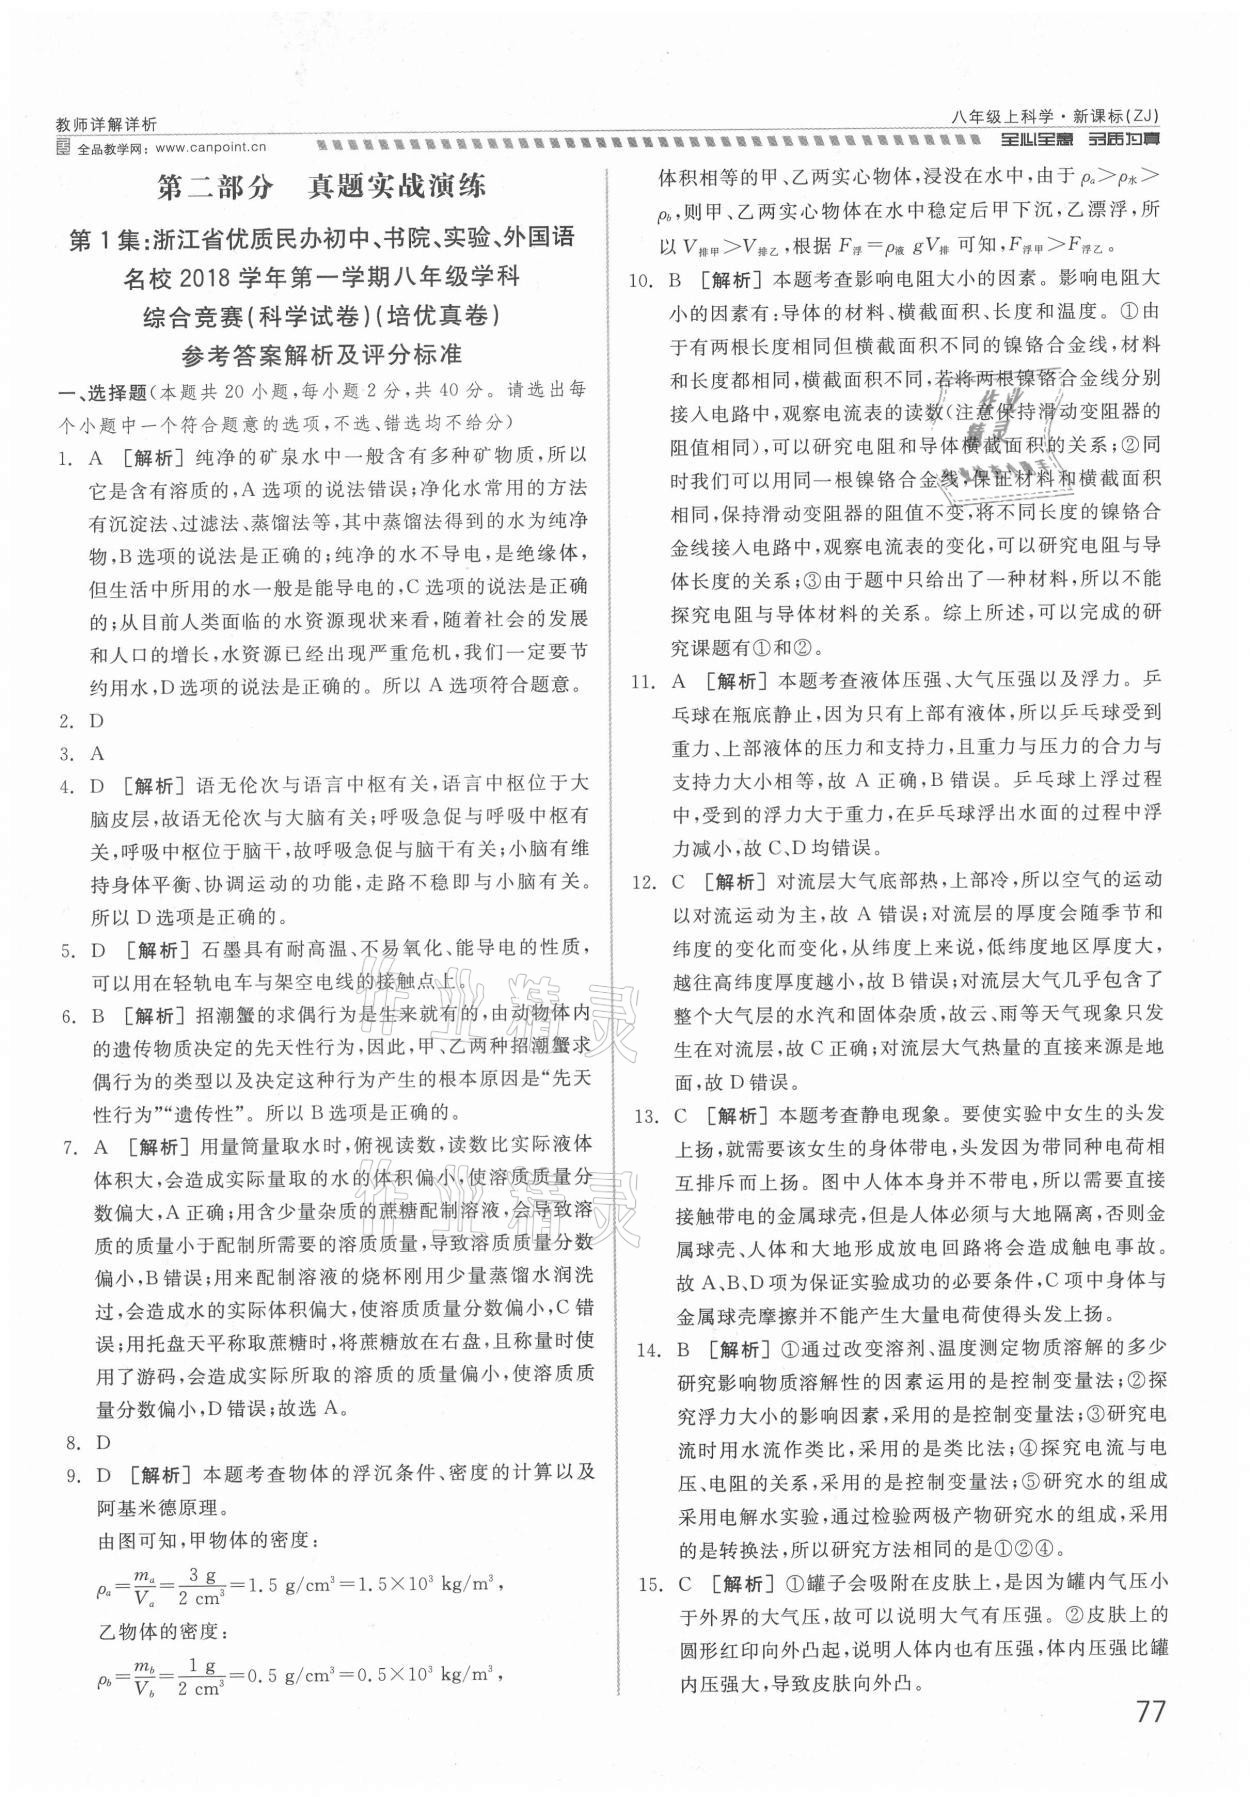 教师详解详析
八年级上科学·新课标(ZJ)
全品教学网：www.canpoint.cn
全心全意 字字为真
第二部分　真题实战演练
第1集:浙江省优质民办初中、书院、实验、外国语
名校2018学年第一学期八年级学科
综合竞赛(科学试卷)(培优真卷)
参考答案解析及评分标准
一、选择题(本题共20小题,每小题2分,共40分。请选出每
个小题中一个符合题意的选项,不选、错选均不给分)
1. A ［解析］纯净的矿泉水中一般含有多种矿物质,所以
它是含有溶质的,A选项的说法错误;净化水常用的方法
有沉淀法、过滤法、蒸馏法等,其中蒸馏法得到的水为纯净
物,B选项的说法是正确的;纯净的水不导电,是绝缘体,
但生活中所用的水一般是能导电的,C选项的说法是正确
的;从目前人类面临的水资源现状来看,随着社会的发展
和人口的增长,水资源已经出现严重危机,我们一定要节
约用水,D选项的说法是正确的。所以A选项符合题意。
2. D
3. A
4. D ［解析］语无伦次与语言中枢有关,语言中枢位于大
脑皮层,故语无伦次与大脑有关;呼吸急促与呼吸中枢有
关,呼吸中枢位于脑干,故呼吸急促与脑干有关;小脑有维
持身体平衡、协调运动的功能,走路不稳即与小脑有关。
所以D选项是正确的。
5. D ［解析］石墨具有耐高温、不易氧化、能导电的性质,
可以用在轻轨电车与架空电线的接触点上。
6. B ［解析］招潮蟹的求偶行为是生来就有的,由动物体内
的遗传物质决定的先天性行为,因此,甲、乙两种招潮蟹求
偶行为的类型以及决定这种行为产生的根本原因是“先天
性行为”“遗传性”。所以B选项是正确的。
7. A ［解析］用量筒量取水时,俯视读数,读数比实际液体
体积大,会造成实际量取的水的体积偏小,使溶质质量分
数偏大,A正确;用含少量杂质的蔗糖配制溶液,会导致溶
质的质量小于配制所需要的溶质质量,导致溶质质量分数
偏小,B错误;用来配制溶液的烧杯刚用少量蒸馏水润洗
过,会造成水的实际体积偏大,使溶质质量分数偏小,C错
误;用托盘天平称取蔗糖时,将蔗糖放在右盘,且称量时使
用了游码,会造成实际所取的溶质的质量偏小,使溶质质
量分数偏小,D错误;故选A。
8. D
9. D ［解析］本题考查物体的浮沉条件、密度的计算以及
阿基米德原理。
由图可知,甲物体的密度:
ρa=ma/Va=3 g/2 cm³=1.5 g/cm³=1.5×10³ kg/m³,
乙物体的密度:
ρb=mb/Vb=1 g/2 cm³=0.5 g/cm³=0.5×10³ kg/m³,
体积相等的甲、乙两实心物体,浸没在水中,由于ρa＞ρ水＞
ρb,则甲、乙两实心物体在水中稳定后甲下沉,乙漂浮,所
以V排甲＞V排乙,根据F浮=ρ液gV排可知,F浮甲＞F浮乙。
10. B ［解析］本题考查影响电阻大小的因素。影响电阻大
小的因素有:导体的材料、横截面积、长度和温度。①由
于有两根长度相同但横截面积不同的镍铬合金线,材料
和长度都相同,横截面积不同,若将两根镍铬合金线分别
接入电路中,观察电流表的读数(注意保持滑动变阻器的
阻值相同),可以研究电阻和导体横截面积的关系;②同
时我们可以用同一根镍铬合金线,保证材料和横截面积
相同,保持滑动变阻器的阻值不变,将不同长度的镍铬合
金线接入电路中,观察电流表的变化,可以研究电阻与导
体长度的关系;③由于题中只给出了一种材料,所以不能
探究电阻与导体材料的关系。综上所述,可以完成的研
究课题有①和②。
11. A ［解析］本题考查液体压强、大气压强以及浮力。乒
乓球在瓶底静止,因为只有上部有液体,所以乒乓球受到
重力、上部液体的压力和支持力,且重力与压力的合力与
支持力大小相等,故A正确,B错误。乒乓球上浮过程
中,受到的浮力大于重力,在乒乓球浮出水面的过程中浮
力减小,故C、D均错误。
12. C ［解析］对流层大气底部热,上部冷,所以空气的运动
以对流运动为主,故A错误;对流层的厚度会随季节和
纬度的变化而变化,从纬度上来说,低纬度地区厚度大,
越往高纬度厚度越小,故B错误;对流层大气几乎包含了
整个大气层的水汽和固体杂质,故云、雨等天气现象只发
生在对流层,故C正确;对流层大气热量的直接来源是地
面,故D错误。
13. C ［解析］本题考查静电现象。要使实验中女生的头发
上扬,就需要该女生的身体带电,头发因为带同种电荷相
互排斥而上扬。图中人体本身并不带电,所以需要直接
接触带电的金属球壳,但是人体必须与大地隔离,否则金
属球壳、人体和大地形成放电回路将会造成触电事故。
故A、B、D项为保证实验成功的必要条件,C项中身体与
金属球壳摩擦并不能产生大量电荷使得头发上扬。
14. B ［解析］①通过改变溶剂、温度测定物质溶解的多少
研究影响物质溶解性的因素运用的是控制变量法;②探
究浮力大小的影响因素,采用的是控制变量法;③研究电
流时用水流作类比,采用的是类比法;④探究电流与电
压、电阻的关系,采用的是控制变量法;⑤研究水的组成
采用电解水实验,通过检验两极产物研究水的组成,采用
的是转换法,所以研究方法相同的是①②④。
15. C ［解析］①罐子会吸附在皮肤上,是因为罐内气压小
于外界的大气压,故可以说明大气有压强。②皮肤上的
圆形红印向外凸起,说明人体内也有压强,体内压强比罐
内压强大,导致皮肤向外凸。
77
作业精灵
作业精灵
作业
精灵